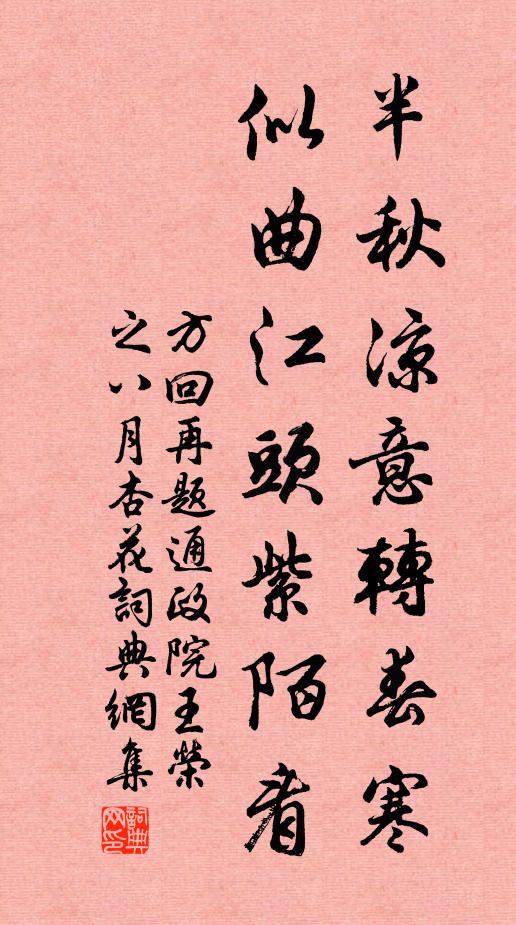 半秋涼意轉春寒
似曲江頭紫陌看
方回再题通政院王榮
之八月杏花詞典網集
詞典網印